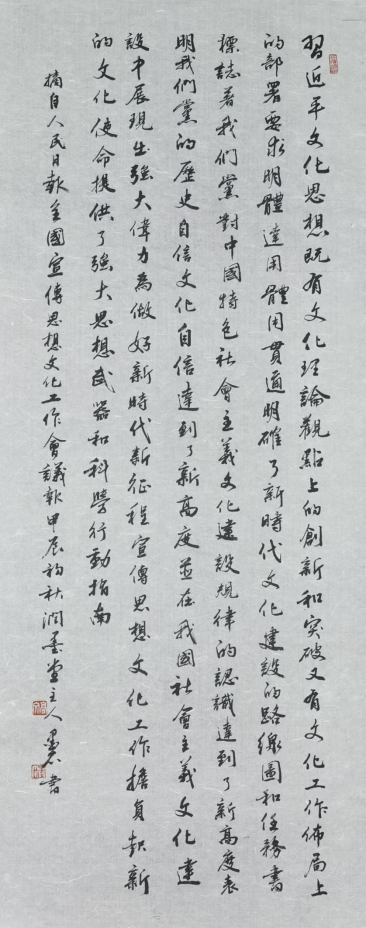 習近平文化思想既有文化理論觀點上的創新和突破又有文化工作佈局上
的部署要求明體達用體用貫通明確了新時代文化建設的路線圖和任務書
標誌著我們黨對中國特色社會主義文化建設規律的認識達到了新高度表
明我們黨的歷史自信文化自信達到了新高度並在我國社會主義文化建
設中展現出強大偉力為做好新時代新征程宣傳思想文化工作擔負起新
的文化使命提供了強大思想武器和科學行動指南
摘自人民日報全國宣傳思想文化工作會議報甲辰初秋潤墨堂主人書